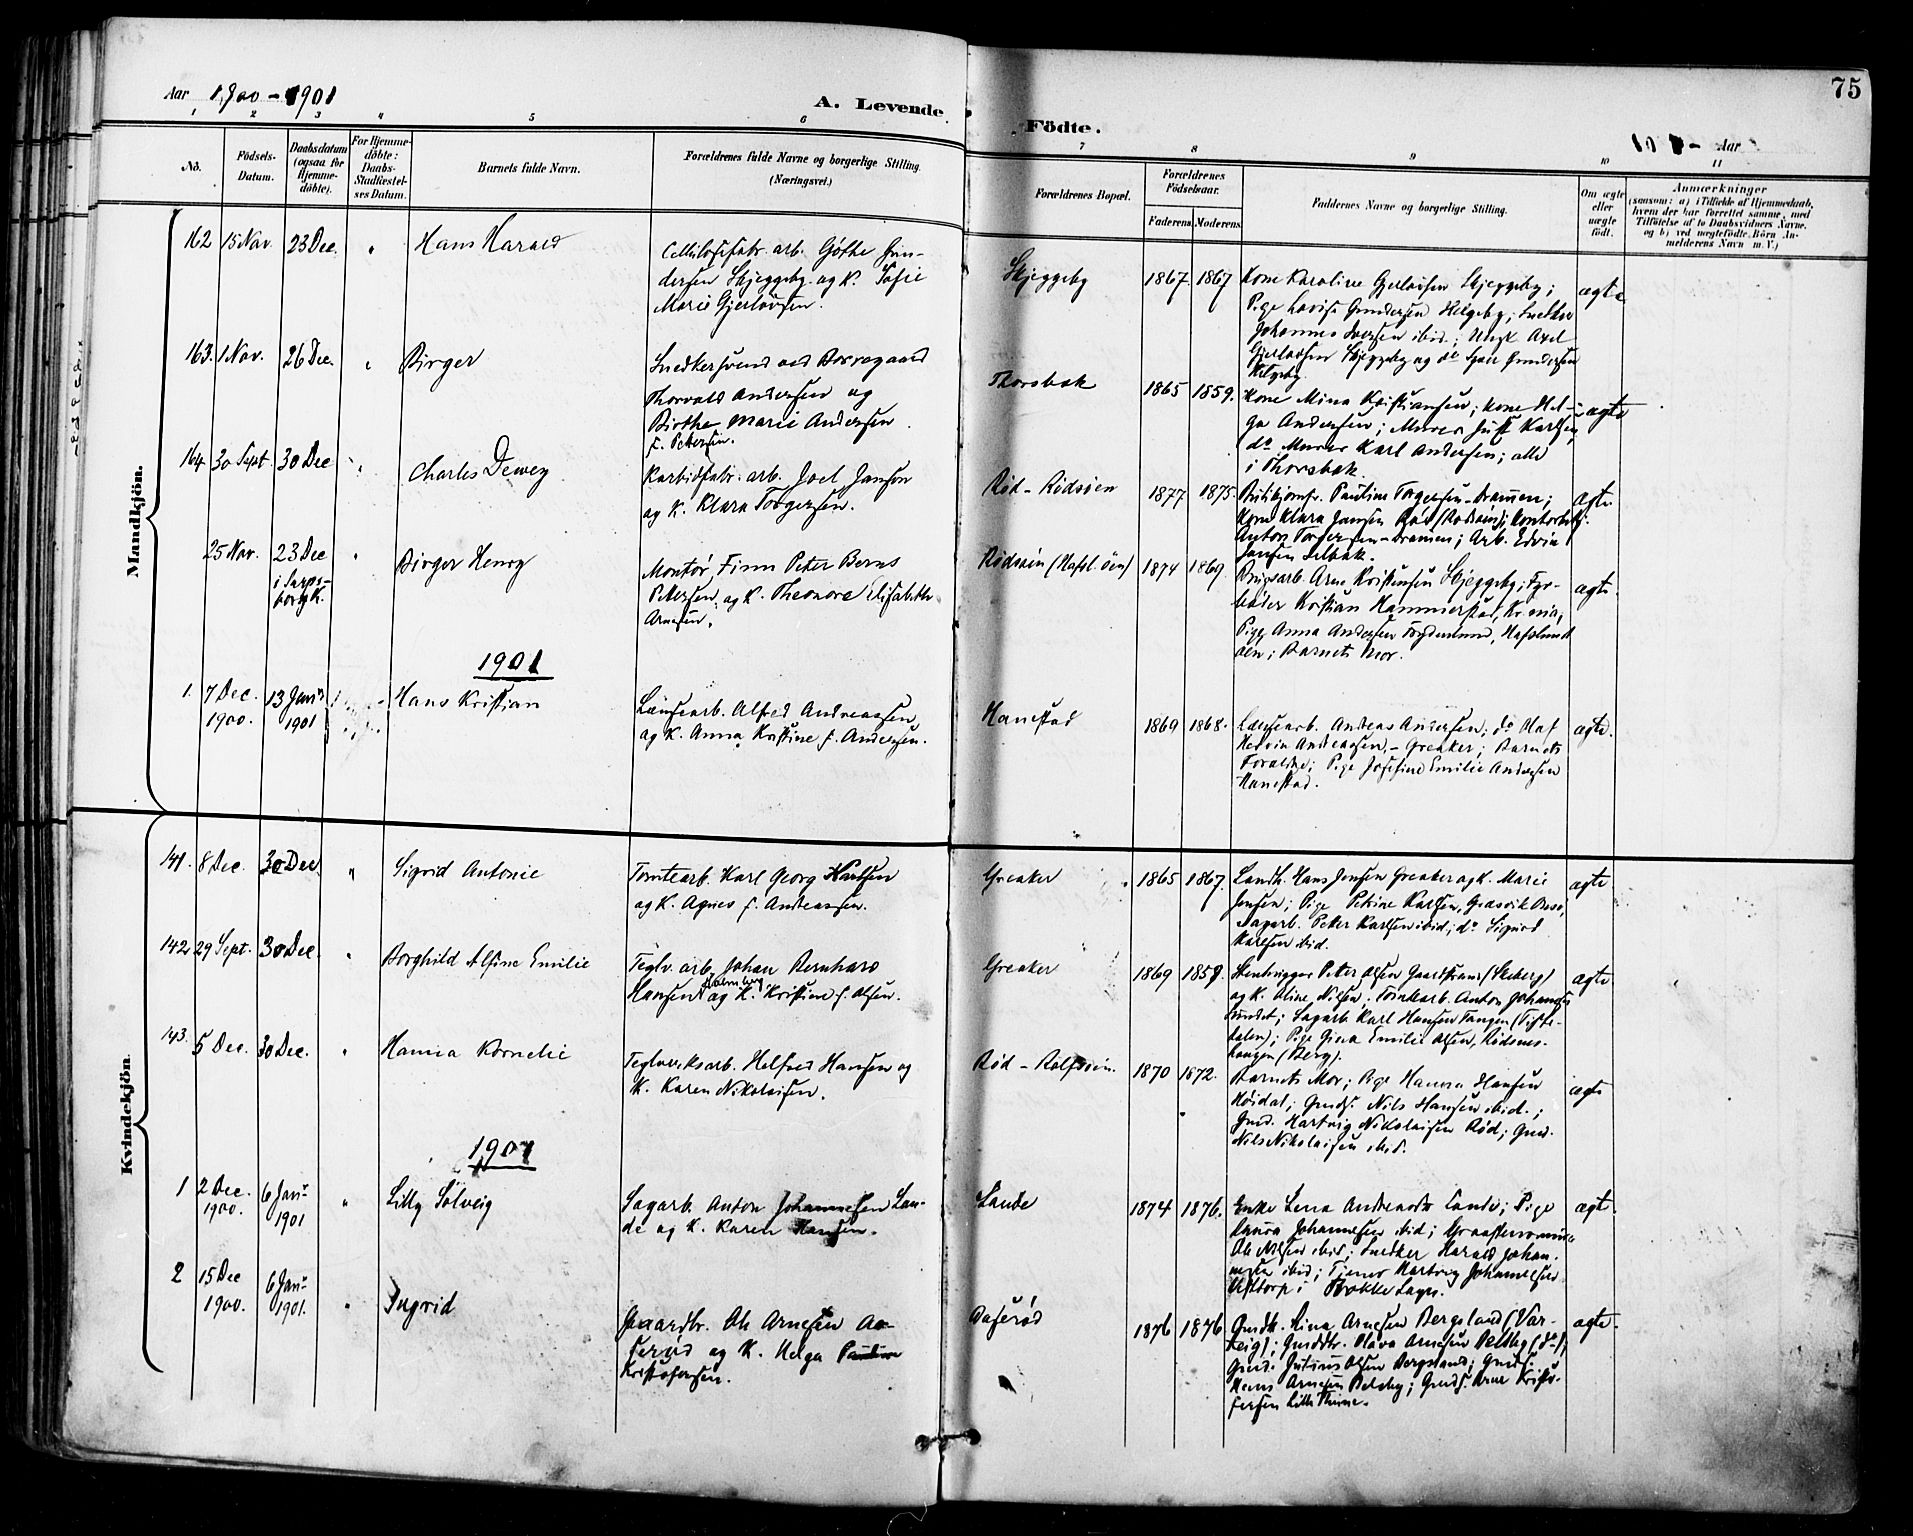 Aar 1900-1901
A. Levende
Födte.
75
Aar
1 2 3 4 5 6 7 8 9 10 11
No.
Födsels-
Datum.
Daabsdatum
(ogsaa for
Hjemme-
döbte).
For Hjemme-
döbte:
Daabs-
Stadfæstel-
ses Datum.
Barnets fulde Navn.
Forældrenes fulde Navne og borgerlige Stilling
(Næringsvei.)
Forældrenes Bopæl.
Forældrenes
Födselsaar.
Faderens. Moderens.
Faddernes Navne og borgerlige Stilling.
Om ægte
eller
uægte
födt.
Anmærkninger
(saasom: a) i Tilfælde af Hjemmedaab,
hvem der har forrettet samme, med
Tilföielse af to Daabsvidners Navne,
og b) ved uægtefödte Börn An-
melderens Navn m. V.)
Mandkjön.
162 15 Nov. 23 Dec. " Hans Harald
Cellulosefabr. arb. Gothe Gun-
dersen Skjeggeby og K. Sofie
Marie Gjerløvsen.
Skjeggeby 1867 1867
Kone Karoline Gjerløvsen Skjeggeby;
Pige Lovise Gundersen Helgeby; Snedker
Johannes Iversen ibid; Ungk Axel
Gjerløvsen Skjeggeby og do Gundersen
Helgeby.
ægte
163. 1 Nov. 26 Dec. " Birger
Snedkersvend ved Borregaard
Thorvald Andersen og
Birthe Marie Andersen
f. Pettersen.
Thorsbak 1865 1859.
Kone Mina Kristiansen; Kone Hel-
ga Andersen; Murer Just Karlsen,
do Murer Karl Andersen; alle
i Thorsbak.
ægte
164 30 Sept. 30 Dec " Charles Dewey
Karbidfabr. arb. Joel Janson
og K. Klara Torgersen.
Rød - Rødsøen 1877 1875.
Pauline Torgersen - Dramen;
Kone Klara Jansen Rød (Rødsøen);
Anton Torgersen - Dramen; Arb. Edvin
Jansen Selbak.
ægte
25 Nov. 23 Dec
i Sarps-
borg K.
" Birger Henry
Montør Finn Peter Bernt
Petersen og K. Theonora Elisabeth
Arnesen.
Rødsøen (Hafsl. øen) 1874 1869
Brugsarb. Arne Kristensen Skjeggeby; Fyr-
bøder Kristian Hammerstad, Kr.ania;
Pige Anna Andersen, Hafslund
øen; Barnets Mor.
ægte
1901
1. 7 Dec.
1900.
13 Janr
1901
Hans Kristian
Lænsearb. Alfred Andreassen
og K. Anna Kristine f. Andersen.
Hanestad 1869 1868.
Lænsearb. Andreas Andersen; do Olaf
Hervin Andreassen - Greaker; Barnets
Forældre; Pige Josefine Emilie Andersen
Hanestad.
ægte.
Kvindekjön
141. 8 Dec. 30 Dec " Sigrid Antonie
Tomtearb. Karl Georg Karlsen
og K. Agnes f. Andreassen.
Greaker 1865 1867.
Landh. Hans Jensen Greaker og K. Marie
Jensen; Pige Petrine Karlsen, Græsvik
Sagarb. Peter Karlsen ibid; do Sigurd
Karlsen ibid.
ægte
142 29 Sept. 30 Dec. " Borghild Alfine Emilie
Teglv. arb. Johan Bernhard
Hansen Holmberg og K. Kristine f. Olsen.
Greaker 1869
Stenhugger Peter Olsen (Skeberg)
og K. Oline Nilsen; Tomtearb. Anton Johansen
Sundet; Sagarb. Karl Hansen Tangen (Tiste-
dalen); Pige Gina Emilie Olsen, Rødsnes-
haugen (Berg).
ægte
143. 5 Dec. 30 Dec. " Hanna Kornelie
Teglverksarb. Helfred Hansen og
K. Karen Nikolaisen.
Rød - Rolfsøen. 1870 1872.
Barnets Mor; Pige Hanna Hansen
Høidal; Gmds. Nils Hansen ibid.;
Gmd. Hartvig Nikolaisen Rød; Gmd.
Nils Nikolaisen ibid.
ægte
1901
1 2 Dec.
1900.
6 Janr
1901
" Lilly Solveig
Sagarb. Anton Johannesen San-
de og K. Karen Hansen.
Sande 1874 1876.
Enke Lena Andreasdr Sande; Pige
Laura Johannesen ibid;
Ole Nilsen ibid; Snedker Harald Johan-
nesen ibid; Tjener Hartvig Johannesen
i Trøkke Sogn.
ægte
2 15 Dec
1900.
6 Janr
1901.
" Ingrid
Gaardbr. Ole Arnesen Aa-
serød og K. Helga
Kristofersen.
Aaserød 1876 1876
Gmdk. Rina Arnesen Bergsland (Var-
teig); Gmddtr. Olava Arnesen Delbeg (do);
Gmd. Julius Olsen Bergsland; Gmds.
Hans Arnesen Delbeg; Gmds. Arne Kristo-
fersen Lille Thune.
ægte